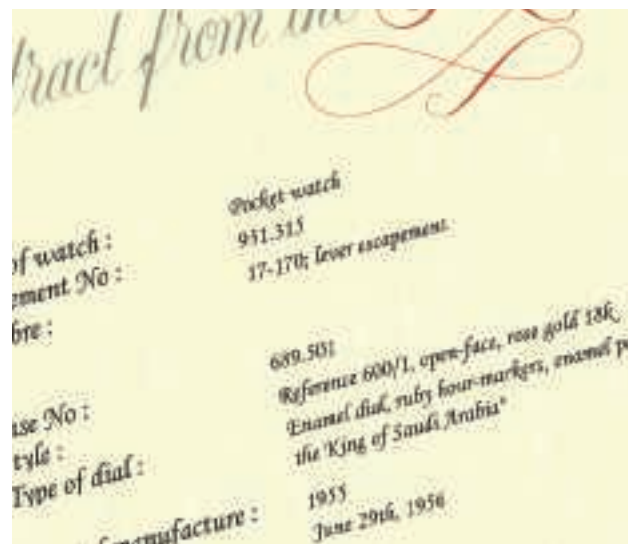 tract from the
of watch : Pocket watch
ement No : 931.315
bre : 17-170; lever escapement.
ase No : 689.501
tyle : Reference 600/1, open-face, rose gold 18k,
Type of dial : Enamel dial, ruby hour-markers, enamel p
the King of Saudi Arabia"
manufacture : 1955
June 29th, 1956